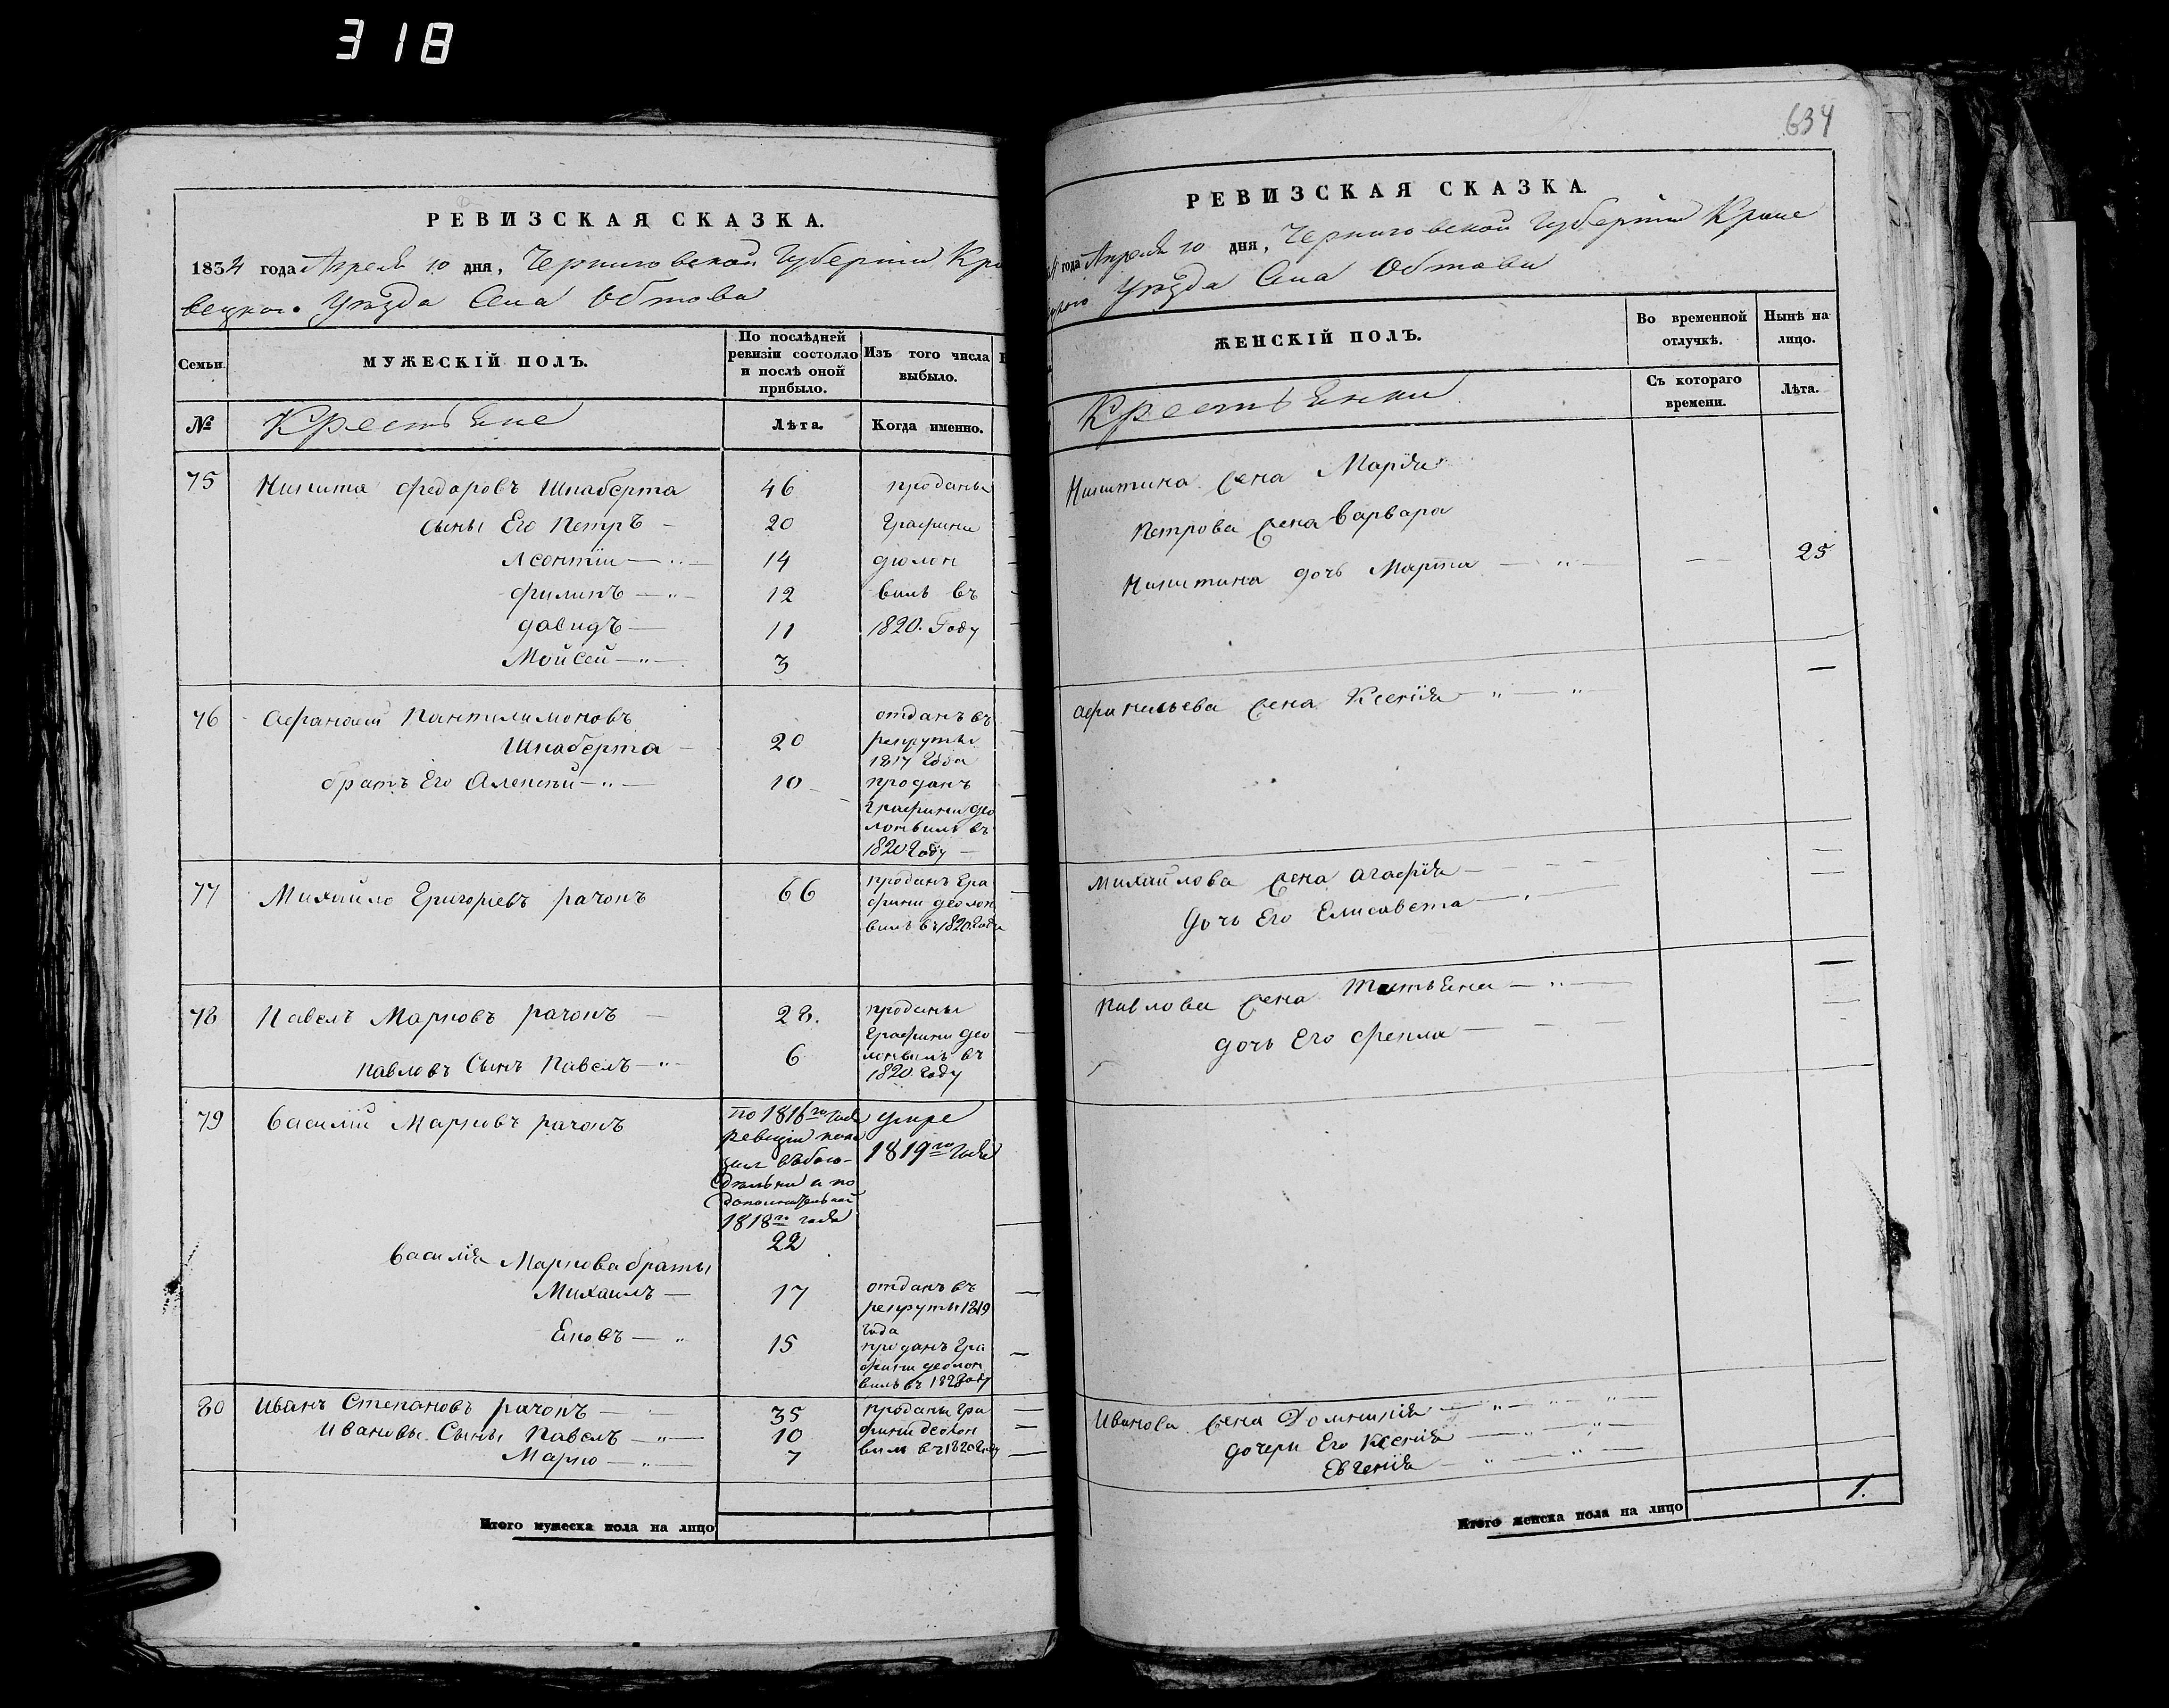 318
634
РЕВИЗСКАЯ СКАЗКА.
1834 года Апреля 10 дня, Черниговской Губернии Кро
вецкого Уѣзда Села Обтова
Семьи.
МУЖЕСКІЙ ПОЛЪ.
По послѣдней ревизіи состояло и послѣ оной прибыло.
Изъ того числа выбыло.
№
Крестьяне
Лѣта.
Когда именно.
75 Никита Федоровъ Шкаберта 46 проданы
Сыны Его Петръ 20 Графини
Леонтій 14 деолон
Филипъ 12 виль въ
Давидъ 11 1820. Году
Мойсей 3
76 Афанасій Пантилимоновъ отданъ въ
Шкаберта 20 рекруты
1817 Года
братъ Его Алексѣй 10 проданъ
Графини део
лонвиль въ
1820 Году
77 Михайло Григорьевъ рачокъ 66 проданъ Гра
фини деолон
виль въ 1820. Году
78 Павелъ Марковъ рачокъ 28. проданы
Графини део
Павловъ Сынъ Павелъ 6 лонвиль въ
1820. Году
79 Василій Марковъ рачокъ По 1816го года умре
ревизіи пока 1819го Года
и по
дополнительной
1818го года
22
Василія Маркова братья
Михаилъ 17 отданъ въ
рекруты 1819
Года
Яковъ 15 проданъ Гра
фини деолон
виль въ Году
80 Иванъ Степановъ рачокъ 35 проданы Гра
Ивановы Сыны Павелъ 10 фини деолон
Марко 7 виль въ 1820 Году
Итого мужеска пола на лицо
РЕВИЗСКАЯ СКАЗКА.
года Апреля 10 дня, Черниговской Губерніи Кроле
Уѣзда Села Обтова
ЖЕНСКІЙ ПОЛЪ.
Во временной отлучкѣ.
Нынѣ на лицо.
Крестьянки
Съ котораго времени.
Лѣта.
Никитина жена Марія
Петрова жена Варвара
Никитина дочь Марта 25
Афанасьева жена Ксенія
Михайлова жена Агафія
Дочь Его Елисавета
Павлова жена Татьяна
дочь Его Фекла
Иванова жена Домникія
дочери Его Ксенія
Евгенія
Итого женска пола на лицо 1.